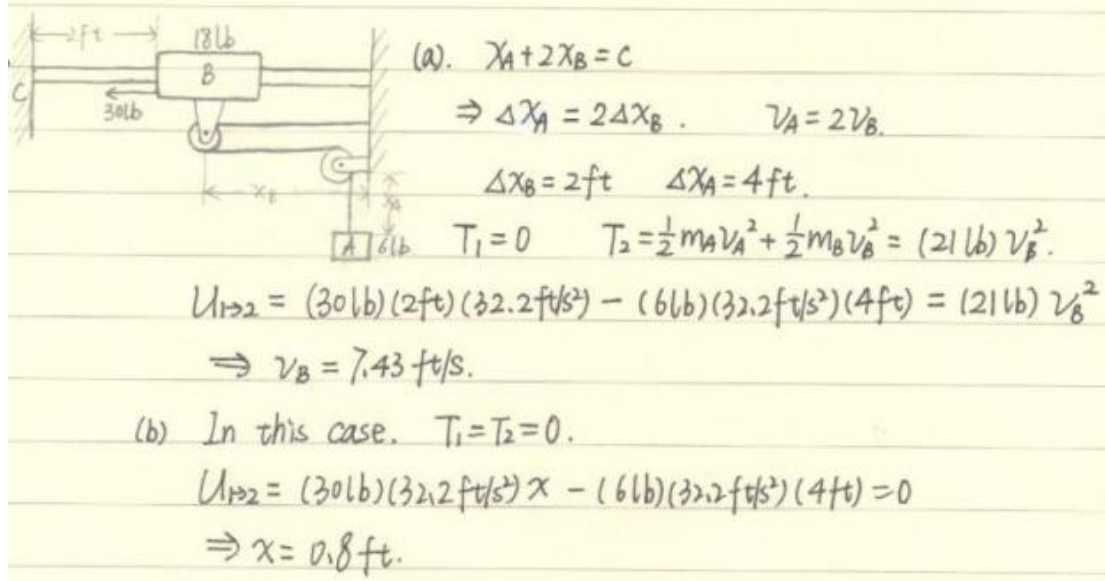 2ft
18lb
B
C
30lb
xB
xA
A 6lb
(a). XA + 2XB = C
⇒ ΔXA = 2ΔXB . VA = 2VB.
ΔXB = 2ft ΔXA = 4ft.
T1 = 0 T2 = ½ mA VA² + ½ mB VB² = (21 lb) VB².
U1→2 = (30lb)(2ft)(32.2ft/s²) − (6lb)(32.2ft/s²)(4ft) = (21lb) VB²
⇒ VB = 7.43 ft/s.
(b) In this case. T1 = T2 = 0.
U1→2 = (30lb)(32.2ft/s²) x − (6lb)(32.2ft/s²)(4ft) = 0
⇒ x = 0.8 ft.